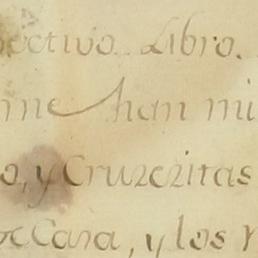 pectivo Libro.
me han mi
o, y Cruzezitas
de Cara, y los